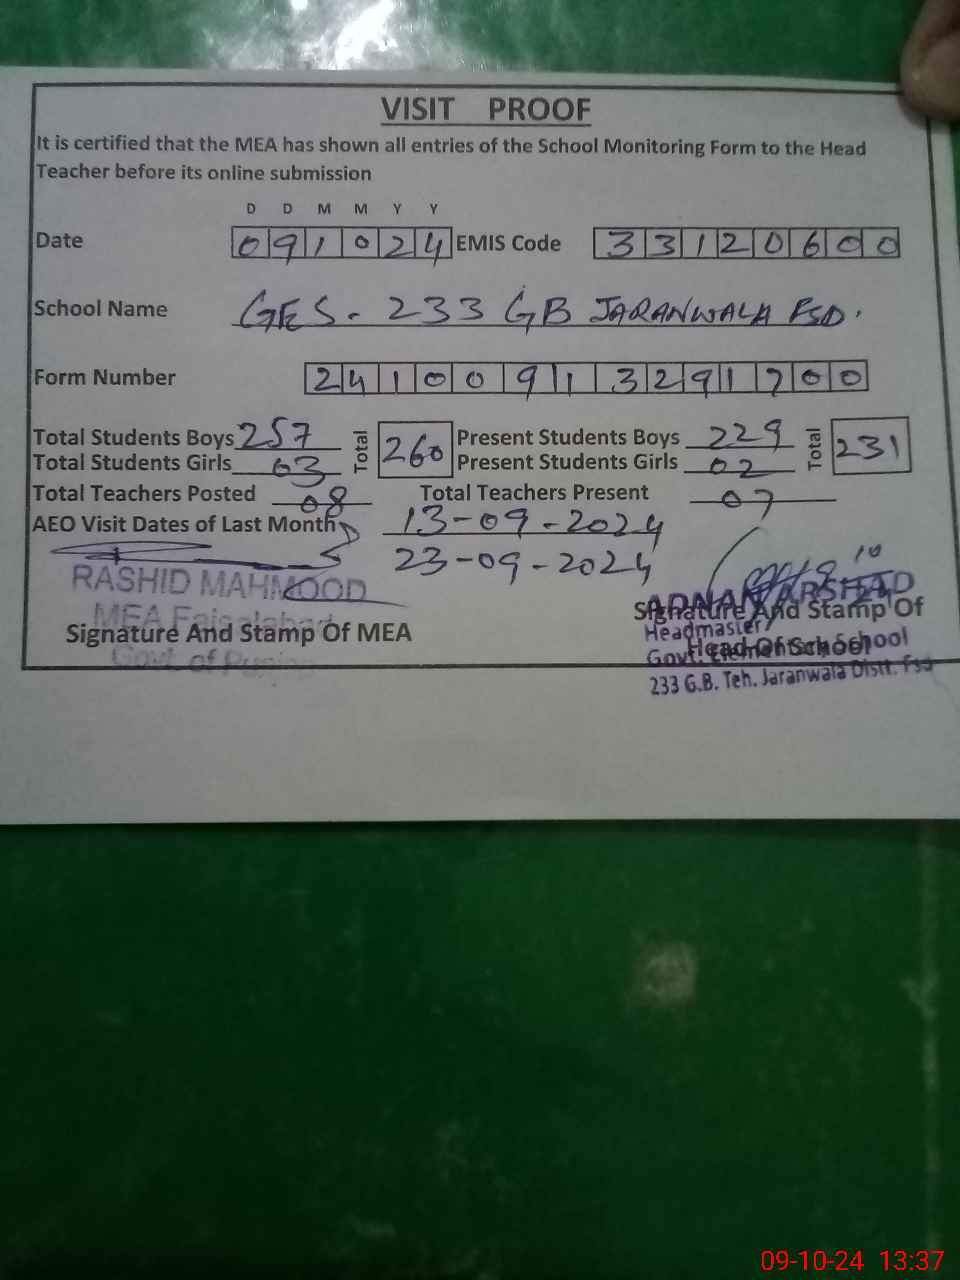 VISIT PROOF
It is certified that the MEA has shown all entries of the School Monitoring Form to the Head
Teacher before its online submission
D D M M Y Y
Date 091024 EMIS Code 33120600
School Name GES. 233 GB JARANWALA FSD.
Form Number 24100913291700
Total Students Boys 257 Total 260 Present Students Boys 229 Total 231
Total Students Girls 03 Present Students Girls 02
Total Teachers Posted 08 Total Teachers Present 07
AEO Visit Dates of Last Month 13-09-2024
23-09-2024
RASHID MAHMOOD
MEA Faisalabad
Govt. of Punjab
Signature And Stamp Of MEA
ADNAN ARSHAD
Signature And Stamp Of
Headmaster
Head Of School
Govt. Elementary School
233 G.B. Teh. Jaranwala Distt. Fsd
09-10-24 13:37